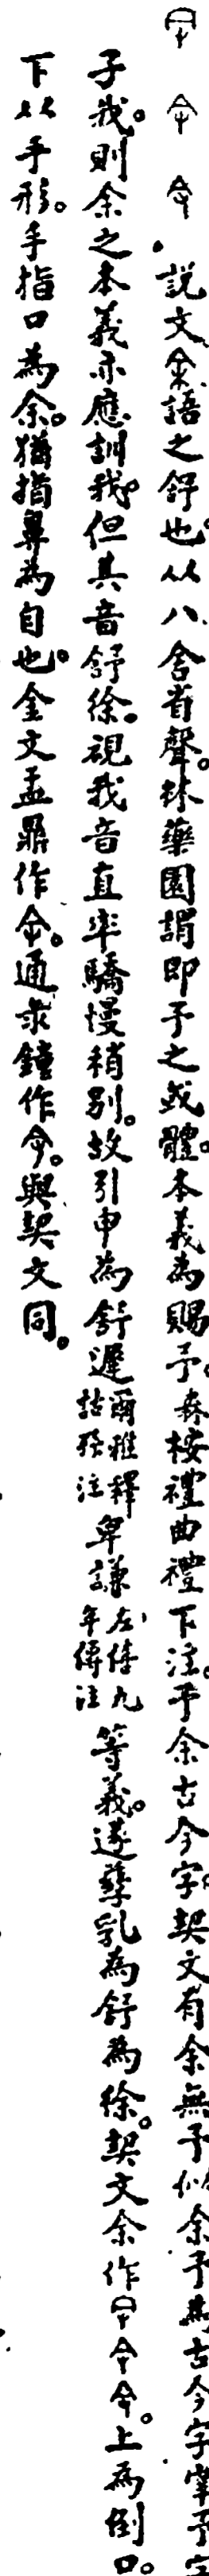 說文余語之舒也从八舍省聲。林藥園謂即予之或體。本義為賜予。森桉禮曲禮下注。予余古今字。契文有余無予似余予為古今字
子我。則余之本義亦應訓我。但其音舒徐。視我音直率驕慢稍別。故引申為舒遲爾雅釋詁孫注卑謙左僖九年傳注等義。遂孳乳為舒為徐。契文余作。上為倒口。
下从手形。手指口為余。猶指鼻為自也。金文盂鼎作。通彔鐘作。與契文同。